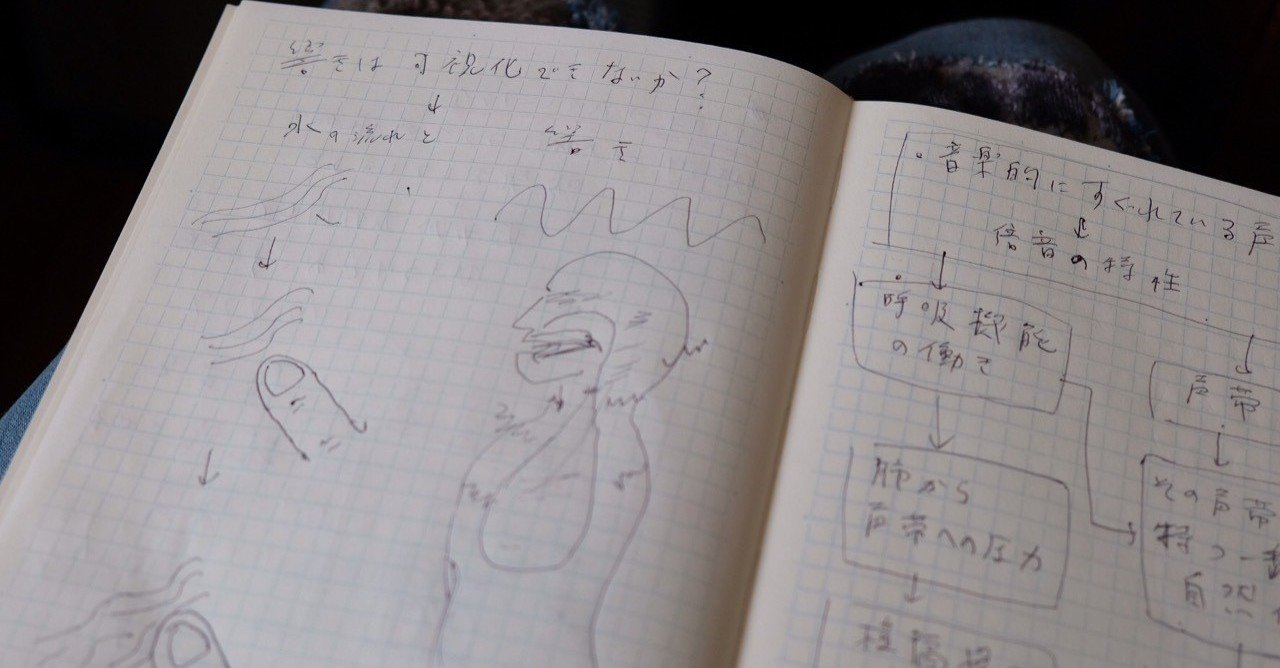 響きは可視化できないか?
水の流れと
響き
・音楽的にすぐれている声
倍音の特性
・呼吸機能
の働き
声帯
肺から
声帯への圧力
その声帯
持つ一番
自然
横隔膜